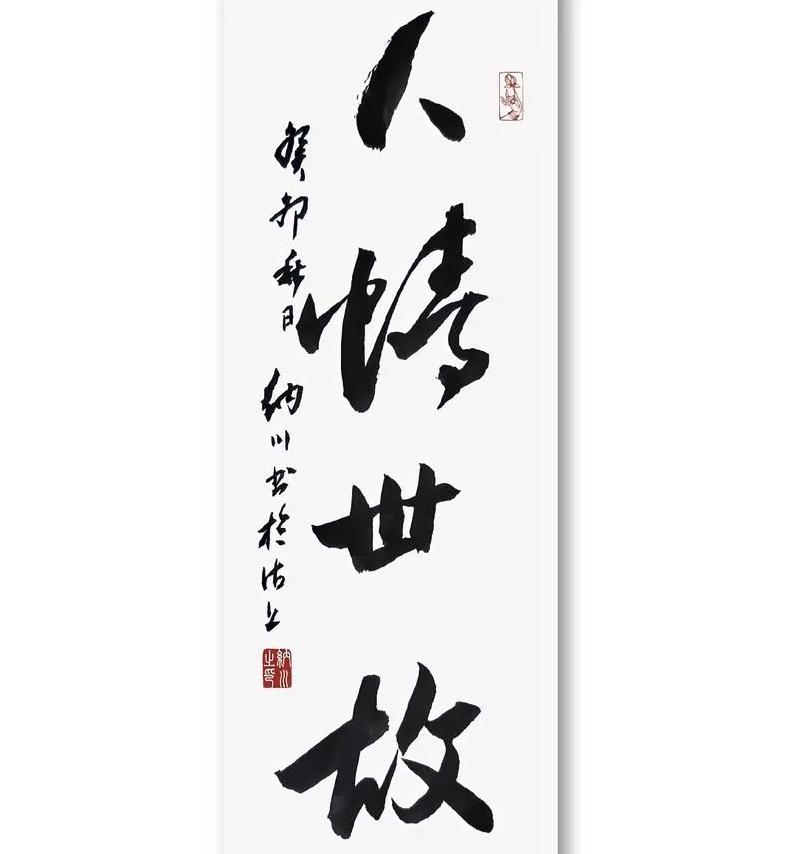 人情世故
癸卯秋日
纳川书於沽上
纳川之印